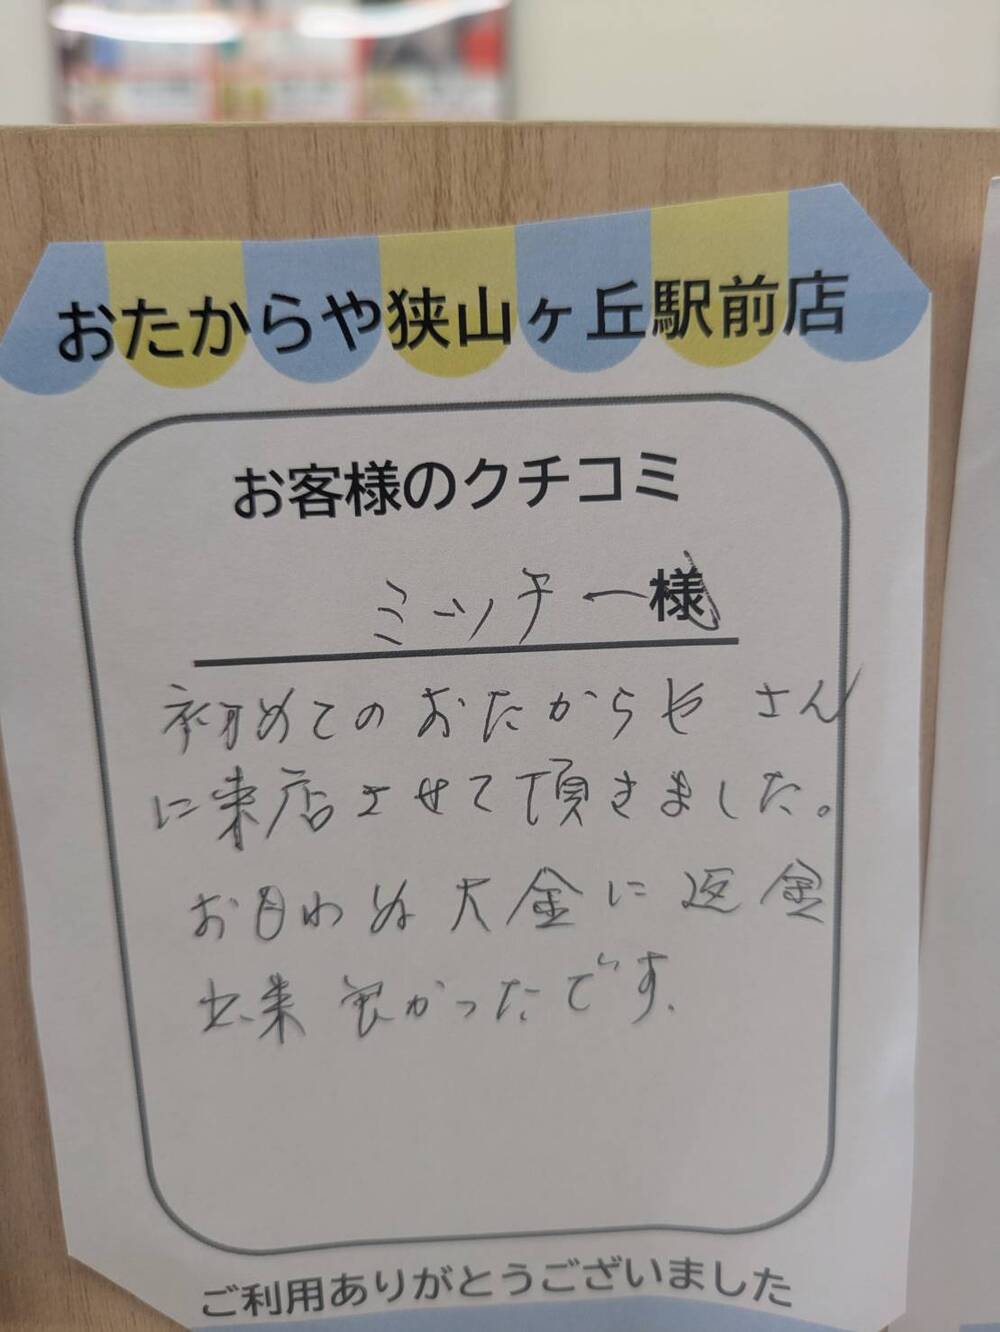 おたからや狭山ヶ丘駅前店
お客様のクチコミ
ミッチー様
初めてのおたからやさん
に来店させて頂きました。
お目わぬ大金に返金
出来良かったです.
ご利用ありがとうございました